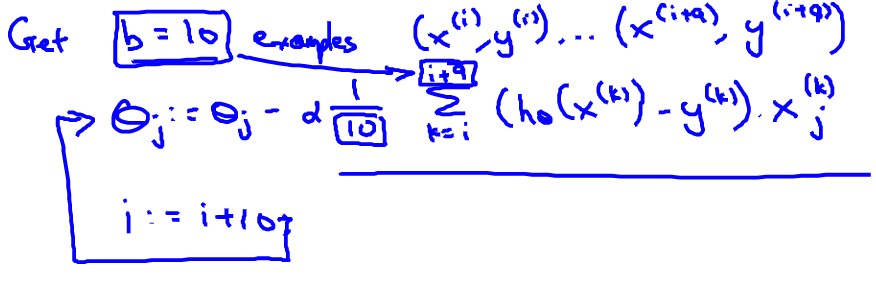 Get b = 10 examples (x^(i), y^(i)) ... (x^(i+9), y^(i+9))
θ_j := θ_j - α 1/10 Σ_{k=i}^{i+9} (h_θ(x^(k)) - y^(k)) . x_j^(k)
i := i + 10